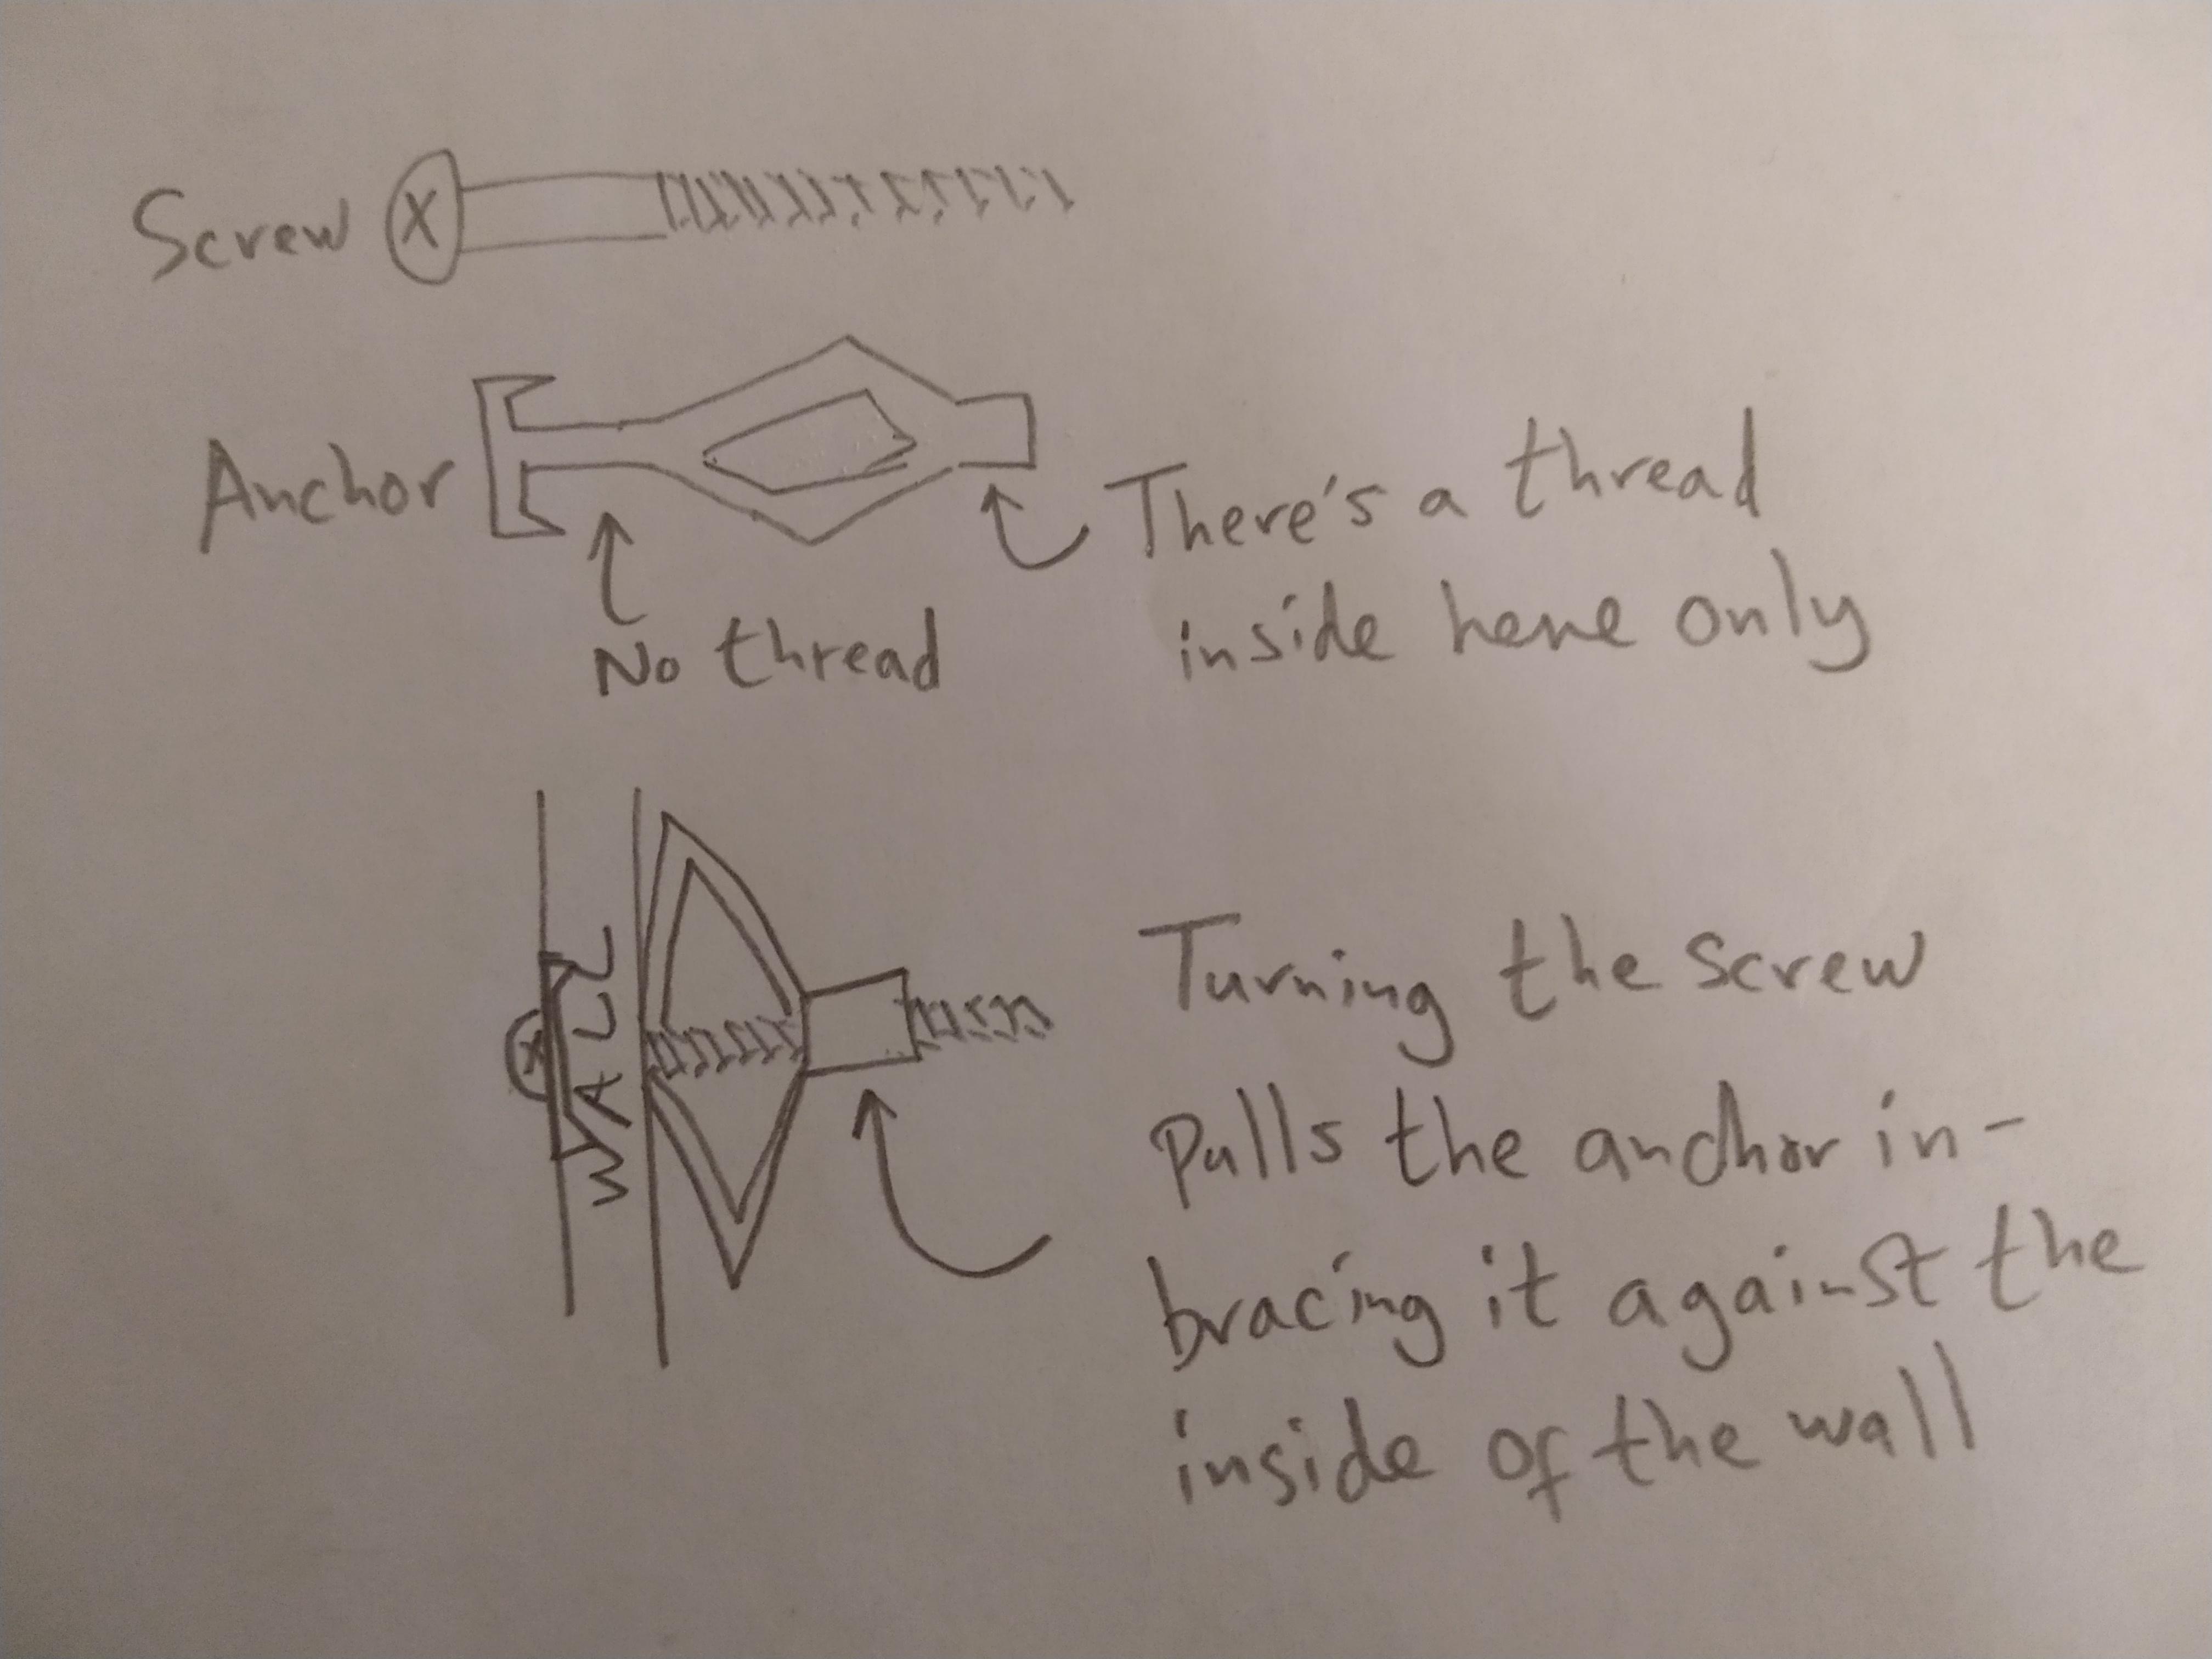 Screw X
Anchor
There's a thread
inside here only
No thread
X
WALL
Turning the screw
pulls the anchor in-
bracing it against the
inside of the wall